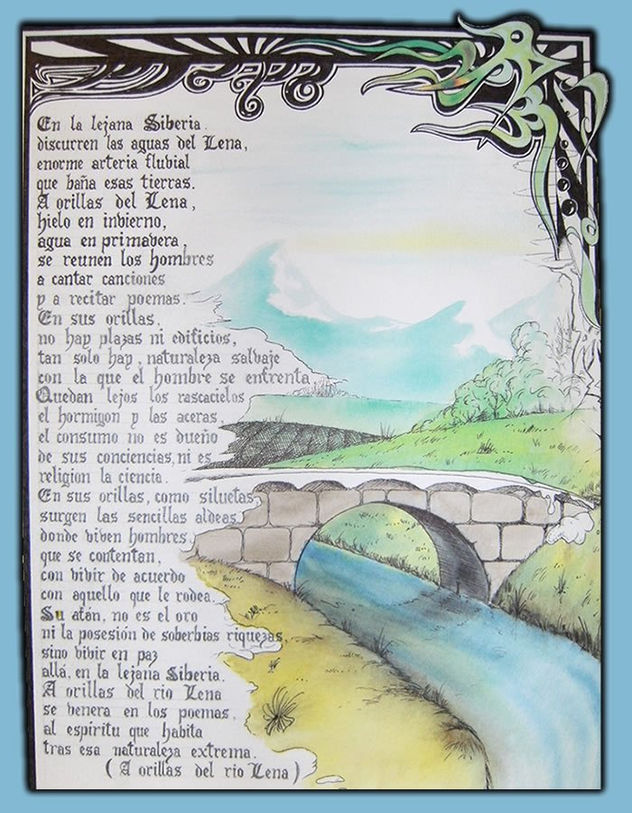 En la lejana Siberia.
discurren las aguas del Lena,
enorme arteria fluvial
que baña esas tierras.
A orillas del Lena,
hielo en invierno,
agua en primavera,
se reunen los hombres
a cantar canciones
y a recitar poemas.
En sus orillas,
no hay plazas ni edificios,
tan solo hay, naturaleza salvaje
con la que el hombre se enfrenta
Quedan lejos los rascacielos
el hormigon y las aceras,
el consumo no es dueño
de sus conciencias, ni es
religion la ciencia.
En sus orillas, como siluetas
surgen las sencillas aldeas
donde viven hombres,
que se contentan,
con vivir de acuerdo
con aquello que le rodea,
Su afán, no es el oro
ni la posesión de soberbias riquezas,
sino vivir en paz
allá, en la lejana Siberia.
A orillas del rio Lena
se venera en los poemas,
al espiritu que habita
tras esa naturaleza extrema.
( A orillas del rio Lena )